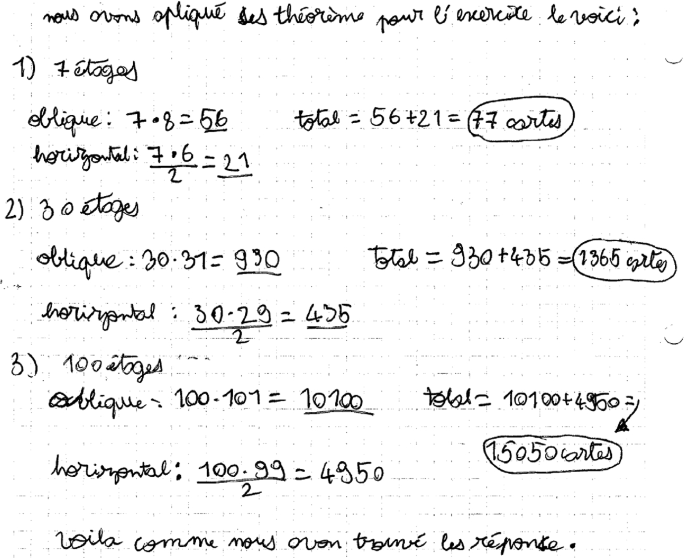 nous avons apliqué ses théorème pour l'exercice le voici :
1) 7 étages
oblique : 7·8 = 56 total = 56+21 = 77 cartes
horizontal : 7·6/2 = 21
2) 30 étages
oblique : 30·31 = 930 total = 930+435 = 1365 cartes
horizontal : 30·29/2 = 435
3) 100 étages
oblique = 100·101 = 10100 total = 10100+4950 =
15050 cartes
horizontal : 100·99/2 = 4950
Voila comme nous avon trouvé les réponse.